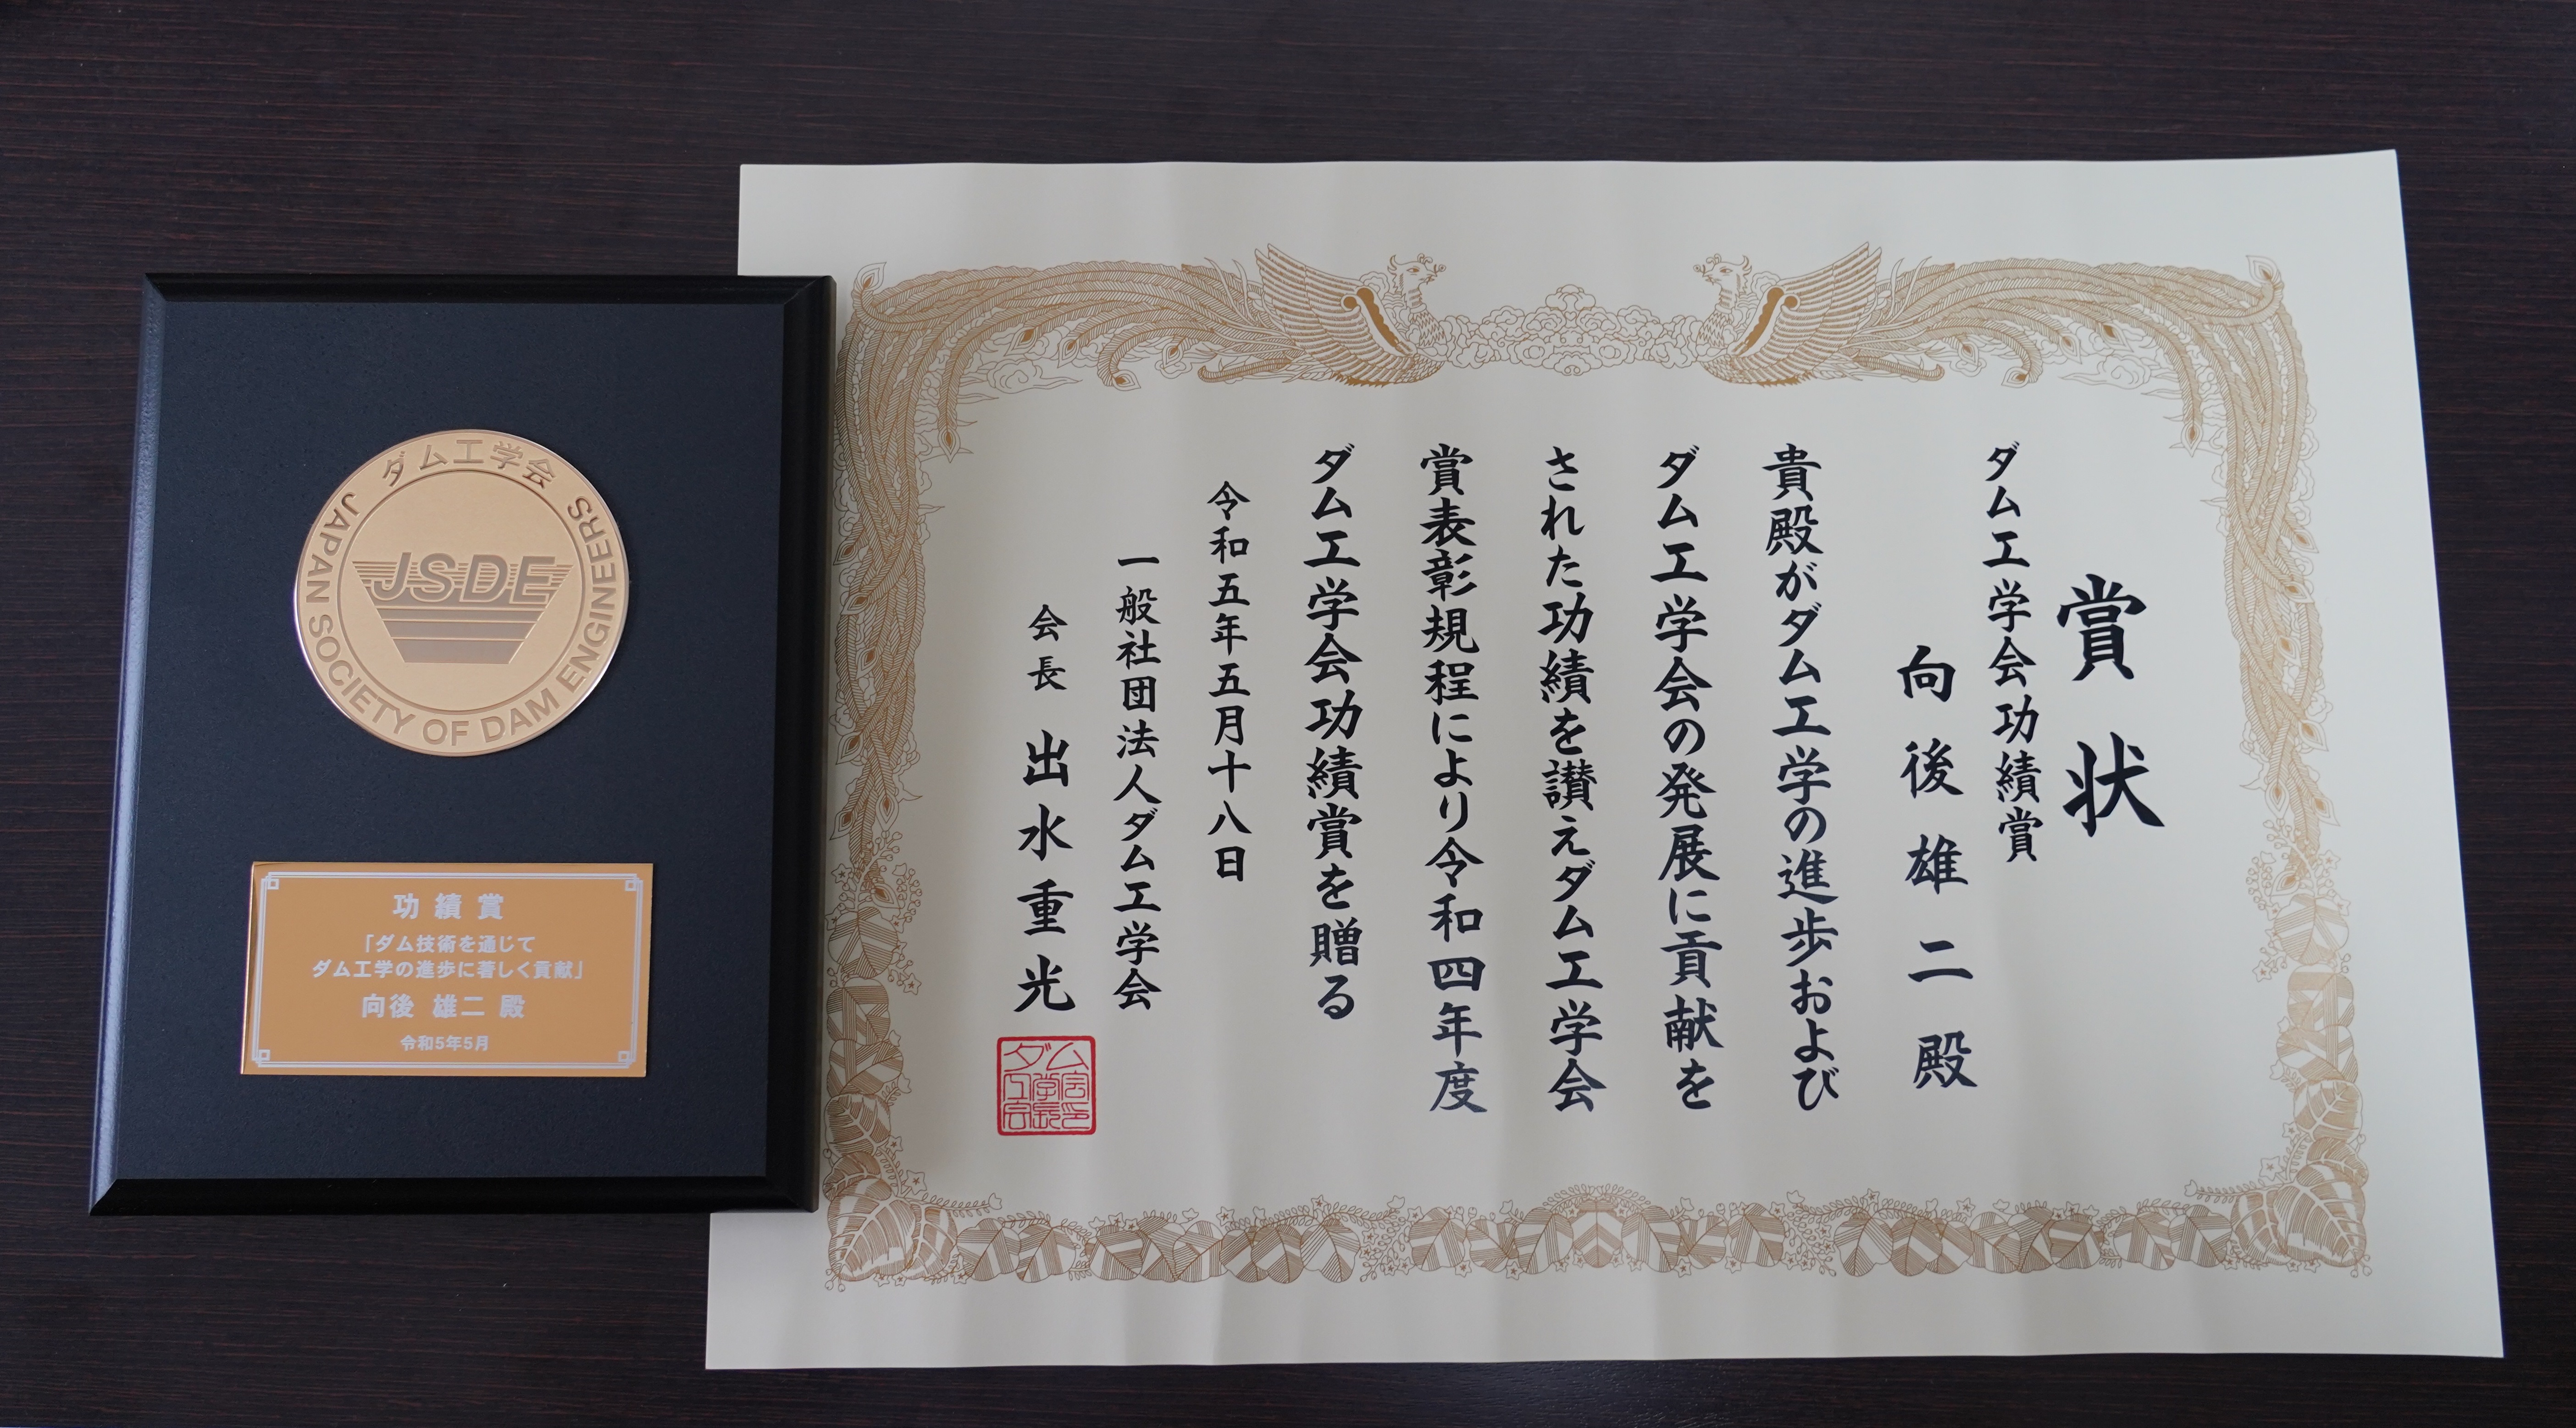 ダム工学会
JAPAN SOCIETY OF DAM ENGINEERS
JSDE
功績賞
「ダム技術を通じて
ダム工学の進歩に著しく貢献」
向後 雄二 殿
令和5年5月
賞状
ダム工学会功績賞
向後雄二殿
貴殿がダム工学の進歩および
ダム工学会の発展に貢献を
された功績を讃えダム工学会
賞表彰規程により令和四年度
ダム工学会功績賞を贈る
令和五年五月十八日
一般社団法人ダム工学会
会長 出水重光
ダム工学会会長印